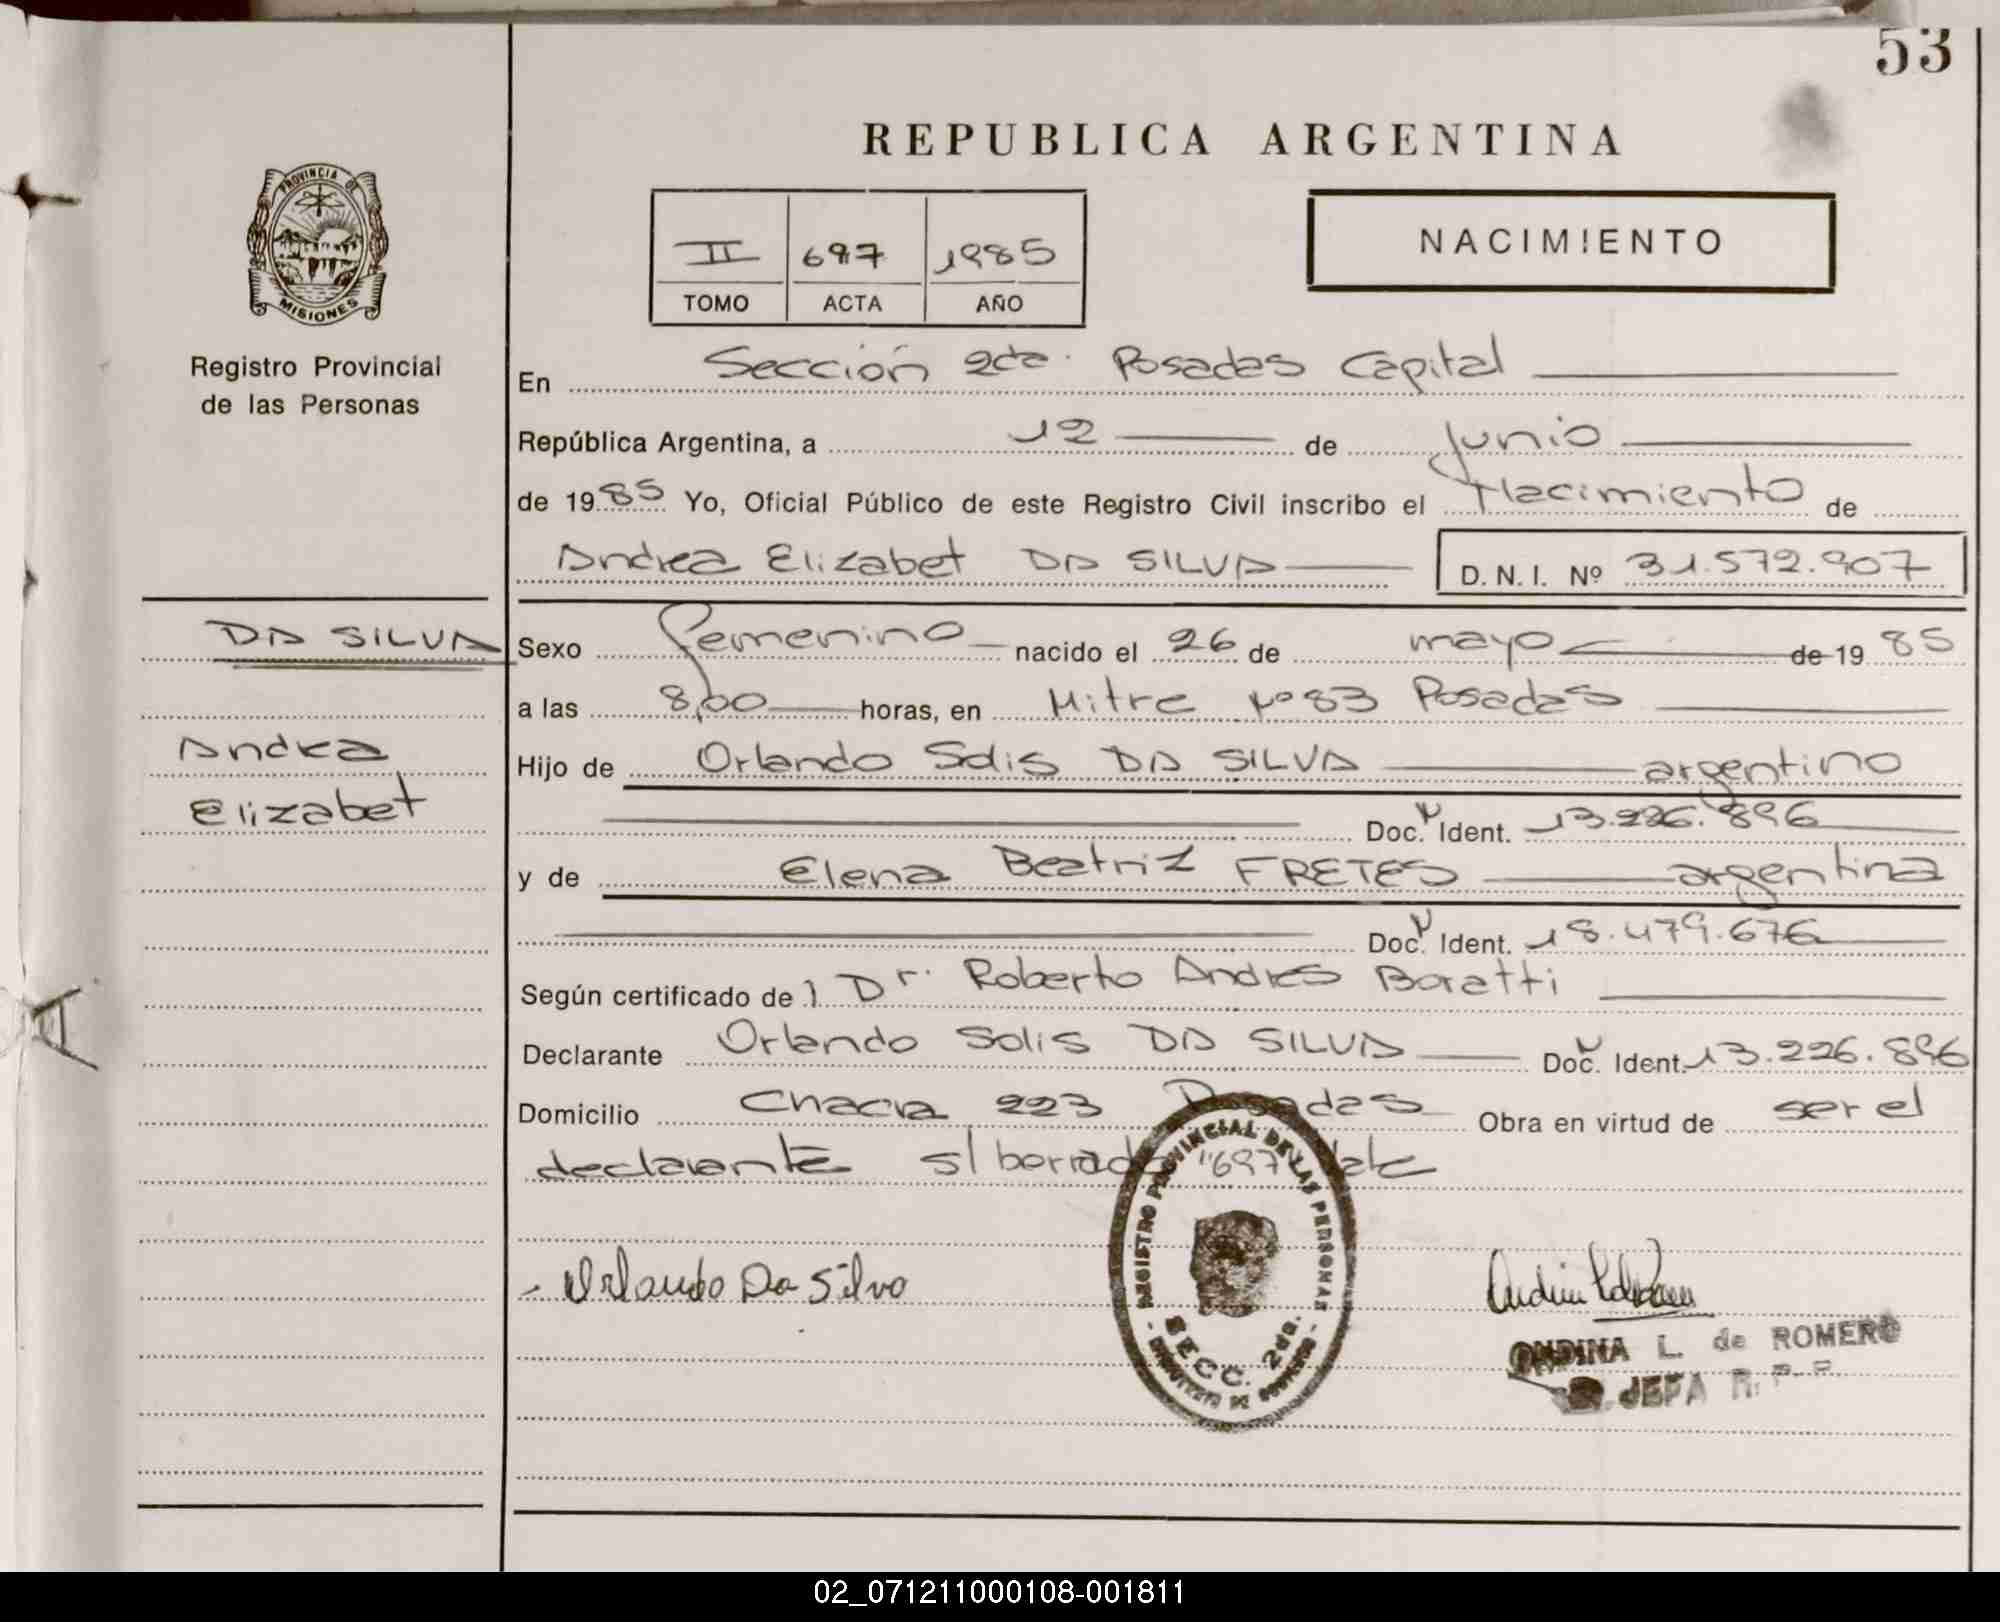 53
REPUBLICA ARGENTINA
PROVINCIA DE
MISIONES
II 697 1985
TOMO ACTA AÑO
NACIMIENTO
Registro Provincial
de las Personas
En Sección 2da. Posadas Capital
República Argentina, a 12 de Junio
de 1985 Yo, Oficial Público de este Registro Civil inscribo el Nacimiento de
Andrea Elizabet DA SILVA D. N. I. Nº 31.572.907
DA SILVA
Andrea
Elizabet
Sexo femenino nacido el 26 de mayo de 19 85
a las 8,00 horas, en Mitre Nº 83 Posadas
Hijo de Orlando Solis DA SILVA argentino
Doc. Ident. 13.226.896
y de Elena Beatriz FRETES argentina
Doc. Ident. 18.479.676
Según certificado de Dr. Roberto Andres Boratti
Declarante Orlando Solis DA SILVA Doc. Ident. 13.226.896
Domicilio Chacra 223 Posadas Obra en virtud de ser el
declarante s/borrado "697" Vale
Orlando Da Silva
REGISTRO PROVINCIAL DE LAS PERSONAS
SECC. 2da.
ONDINA L. de ROMERO
JEFA R. P. P.
02_071211000108-001811